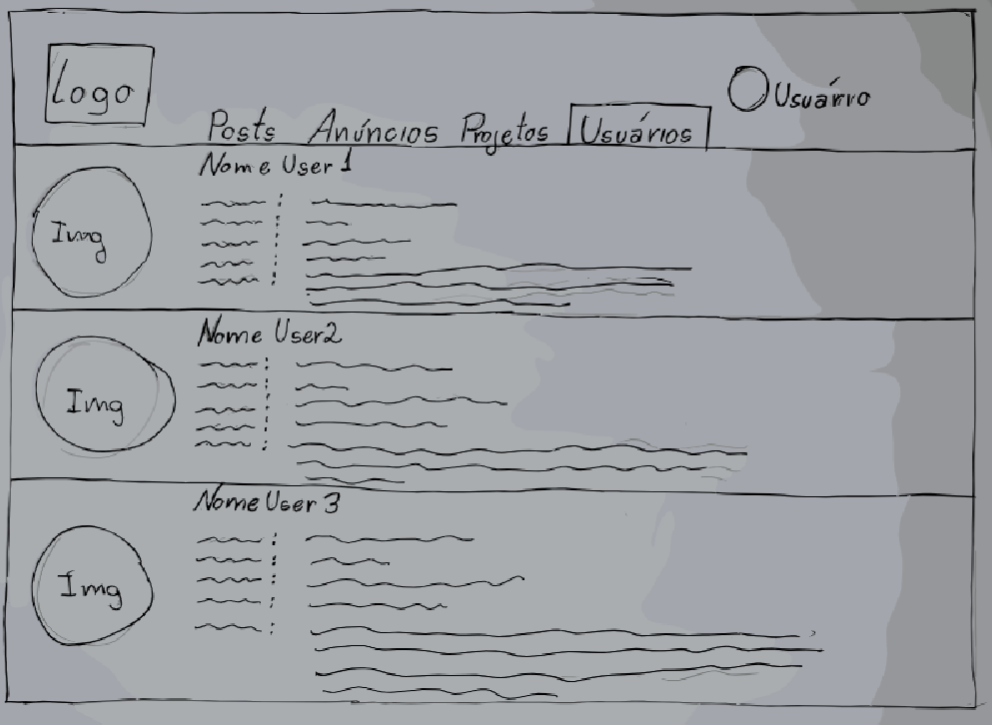 Logo
Usuário
Posts Anúncios Projetos Usuários
Nome User 1
Img
Nome User2
Img
Nome User 3
Img